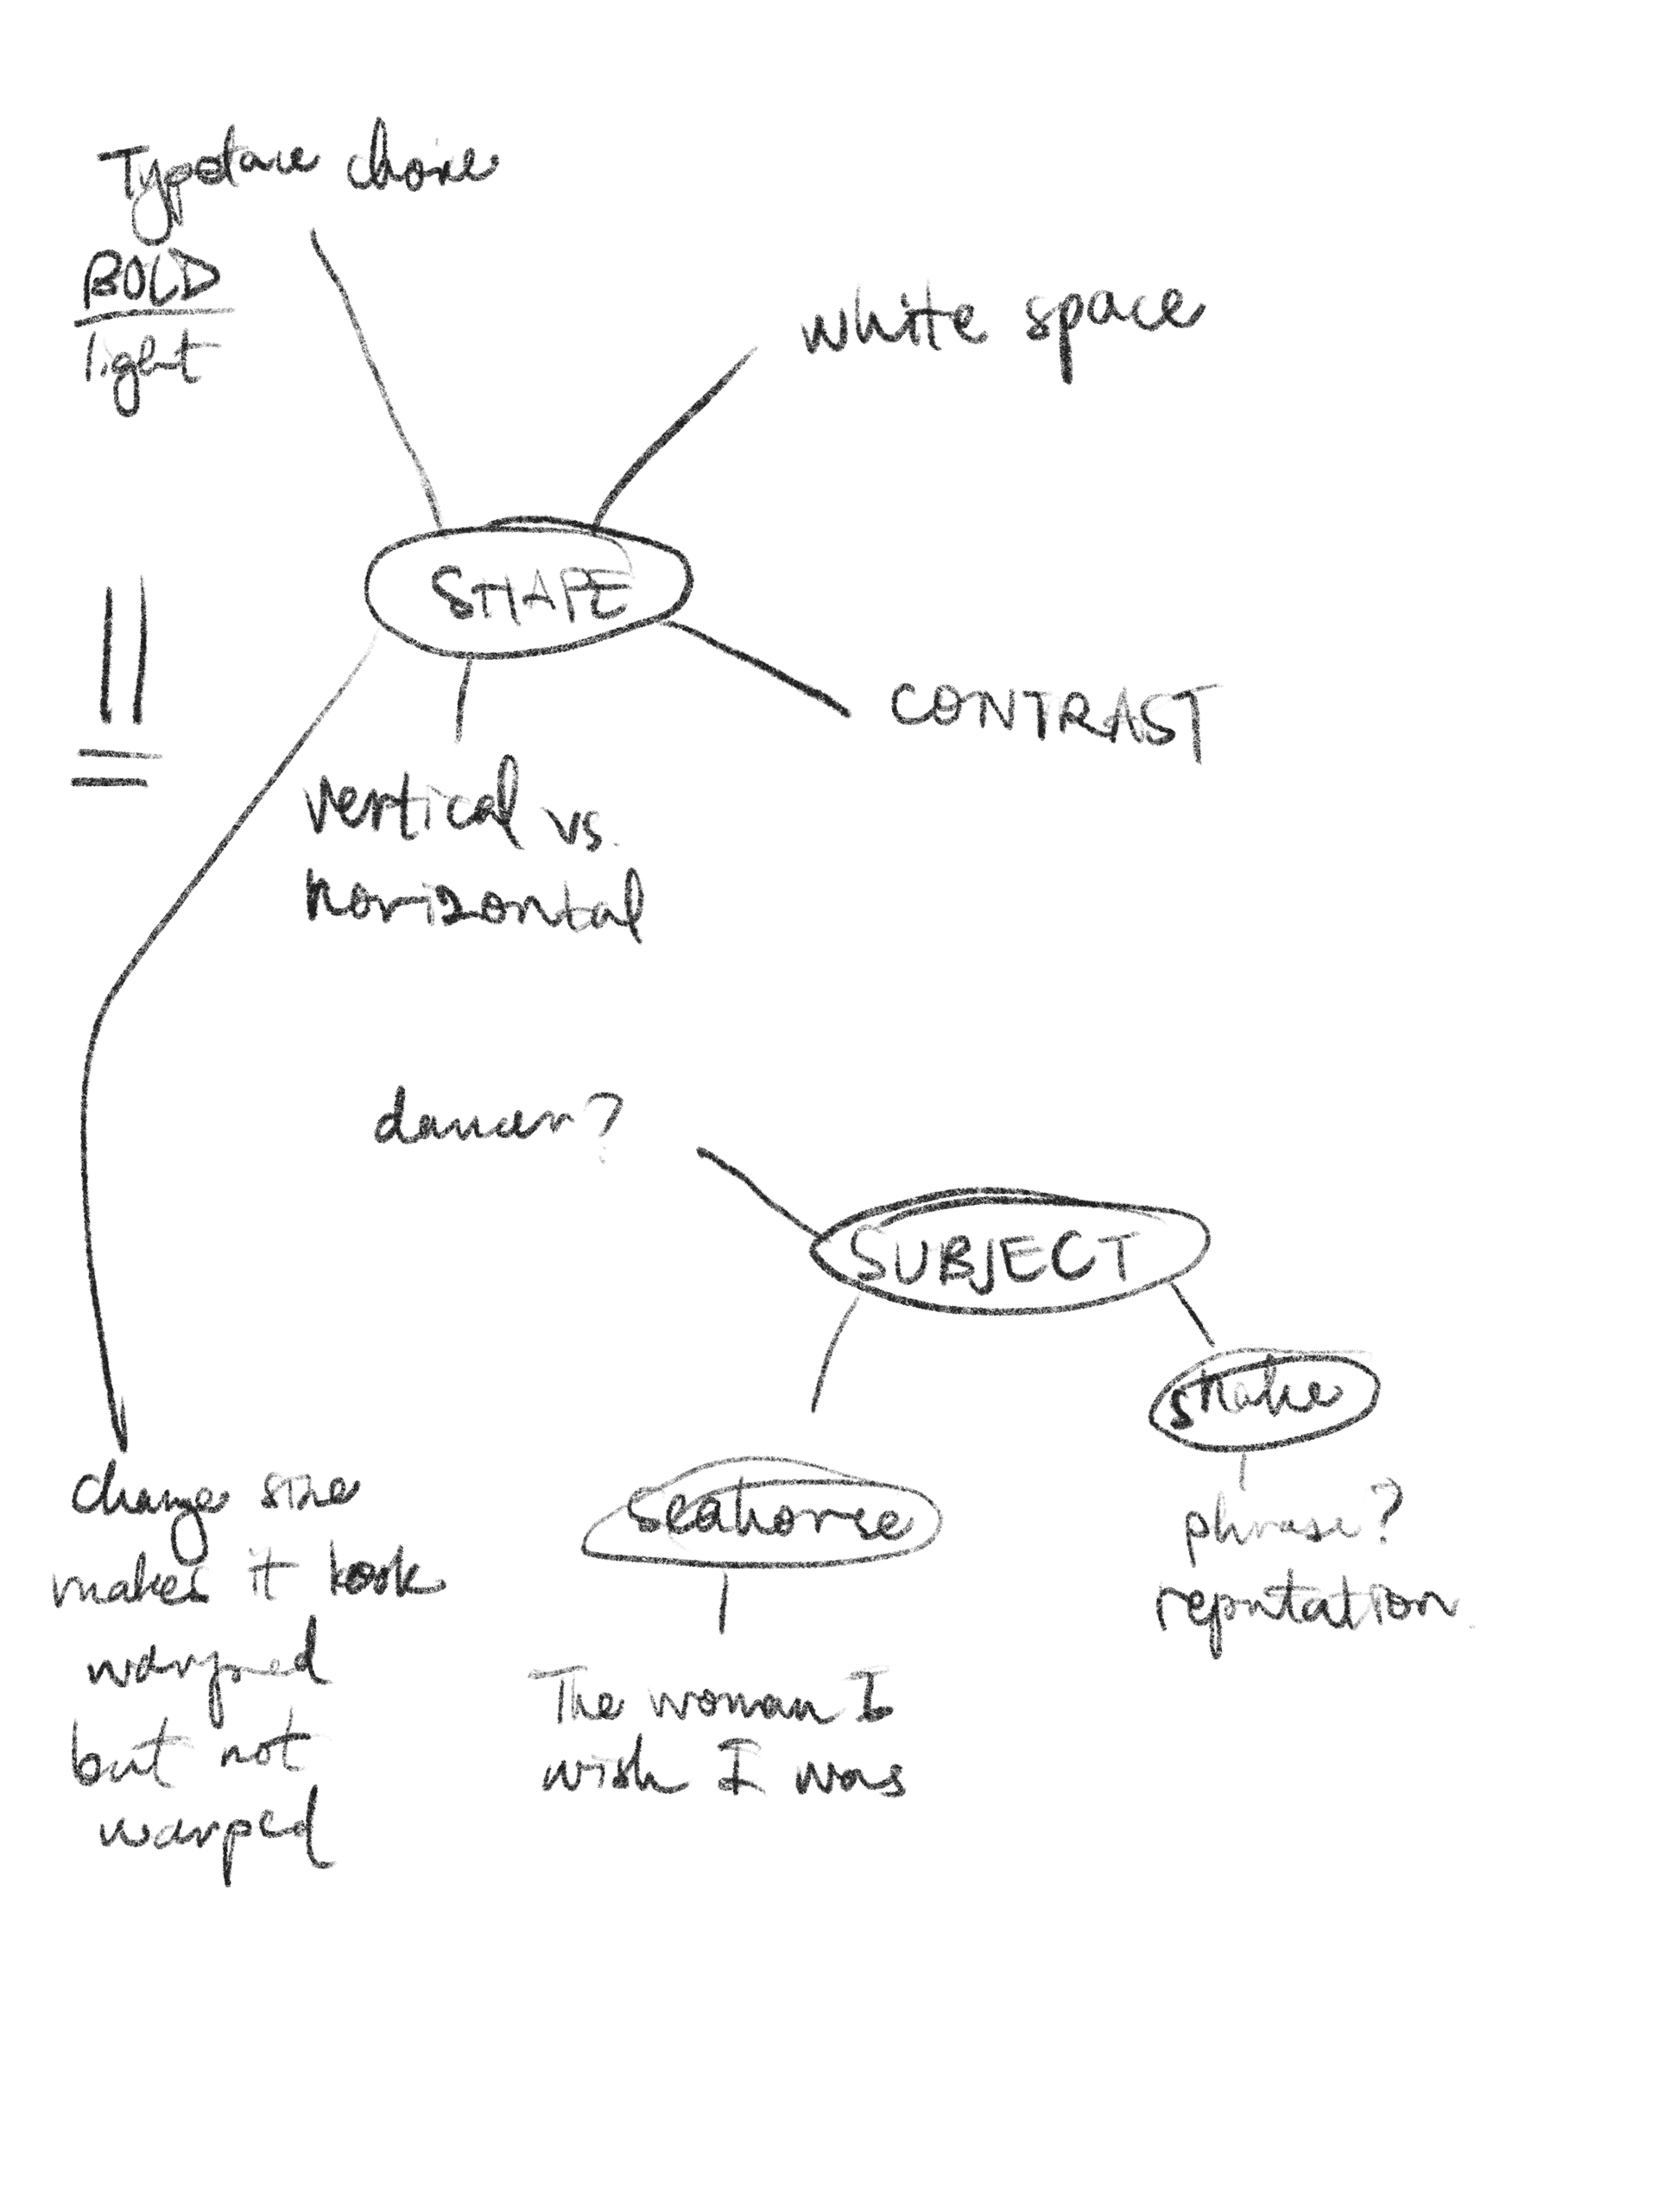 Typeface choice
BOLD
light
white space
SHAPE
CONTRAST
vertical vs.
horizontal
dancer?
SUBJECT
snake
change size
makes it look
warped
but not
warped
seahorse
phrase?
reputation
The woman I
wish I was